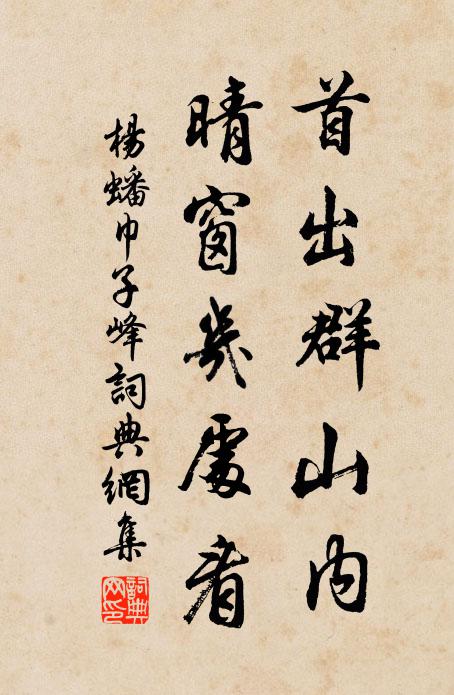 首出群山内
晴窗幾處看
楊蟠巾子峰詞典網集
詞典网印